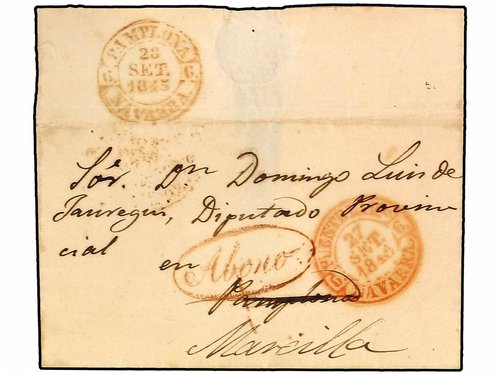 PAMPLONA
28
SET.
1845
G. G.
NAVARRA
Sór. Dn Domingo Luis de
Jauregui, Diputado Provin
cial en Pamplona
Abono
27
SET
1845
NAVARRA
Marcilla